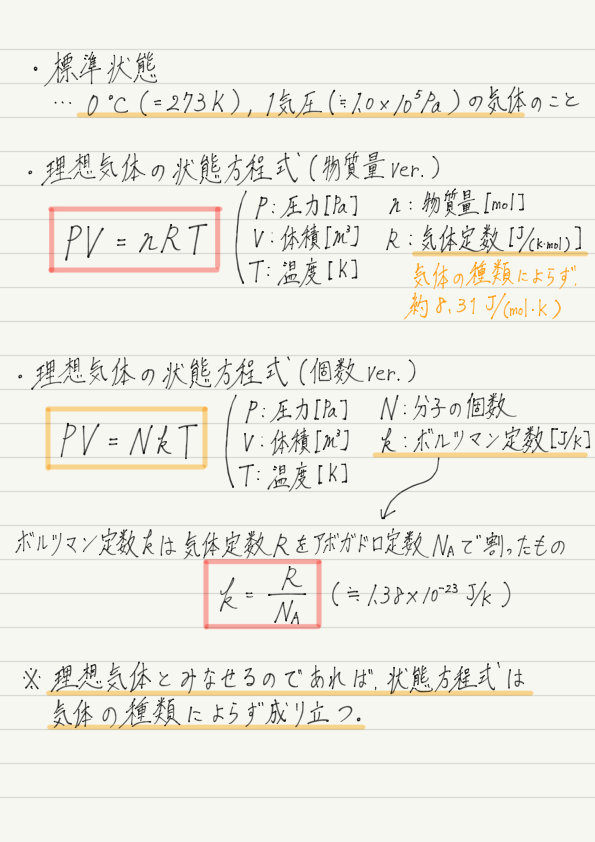 ・標準状態
… 0℃(=273K), 1気圧(≒1.0×10⁵Pa)の気体のこと
・理想気体の状態方程式(物質量ver.)
PV = nRT
P:圧力[Pa] n:物質量[mol]
V:体積[m³] R:気体定数[J/(K·mol)]
T:温度[K]
気体の種類によらず,
約8.31 J/(mol·K)
・理想気体の状態方程式(個数ver.)
PV = NkT
P:圧力[Pa] N:分子の個数
V:体積[m³] k:ボルツマン定数[J/K]
T:温度[K]
ボルツマン定数kは気体定数Rをアボガドロ定数N_Aで割ったもの
k = R/N_A (≒1.38×10⁻²³ J/K)
※理想気体とみなせるのであれば,状態方程式は
気体の種類によらず成り立つ。